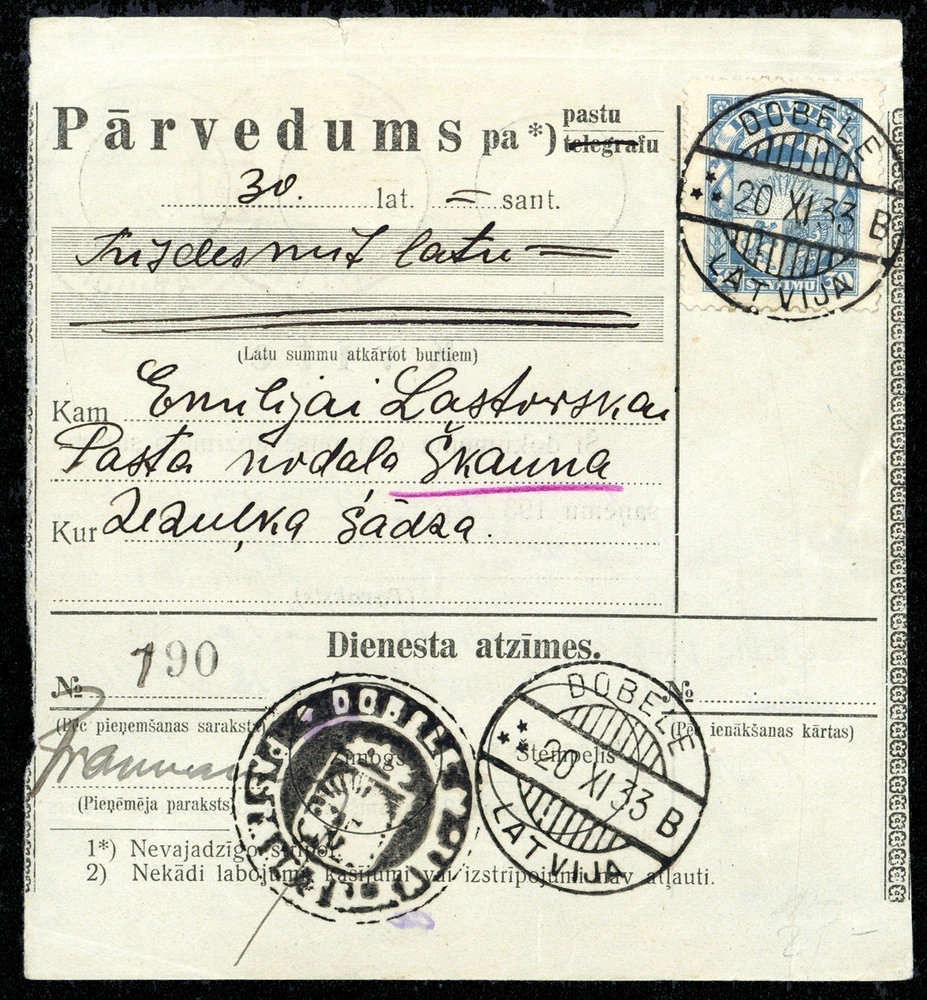 Pārvedums pa *) pastu
telegrafu
30. lat. = sant.
Trīsdesmit latu
(Latu summu atkārtot burtiem)
Kam Emilijai Lastovskai
Pasta nodaļa Šķauna
Kur sādža.
DOBELE
20 XI 33 B
LATVIJA
Dienesta atzīmes.
190
№
№
(Pēc pieņemšanas saraksta)
(Pēc ienākšanas kārtas)
Zīmogs
Stempelis
DOBELE
20 XI 33 B
LATVIJA
(Pieņēmēja paraksts)
1*) Nevajadzīgo
2) Nekādi labojumi, kasījumi vai izstrīpojumi nav atļauti.